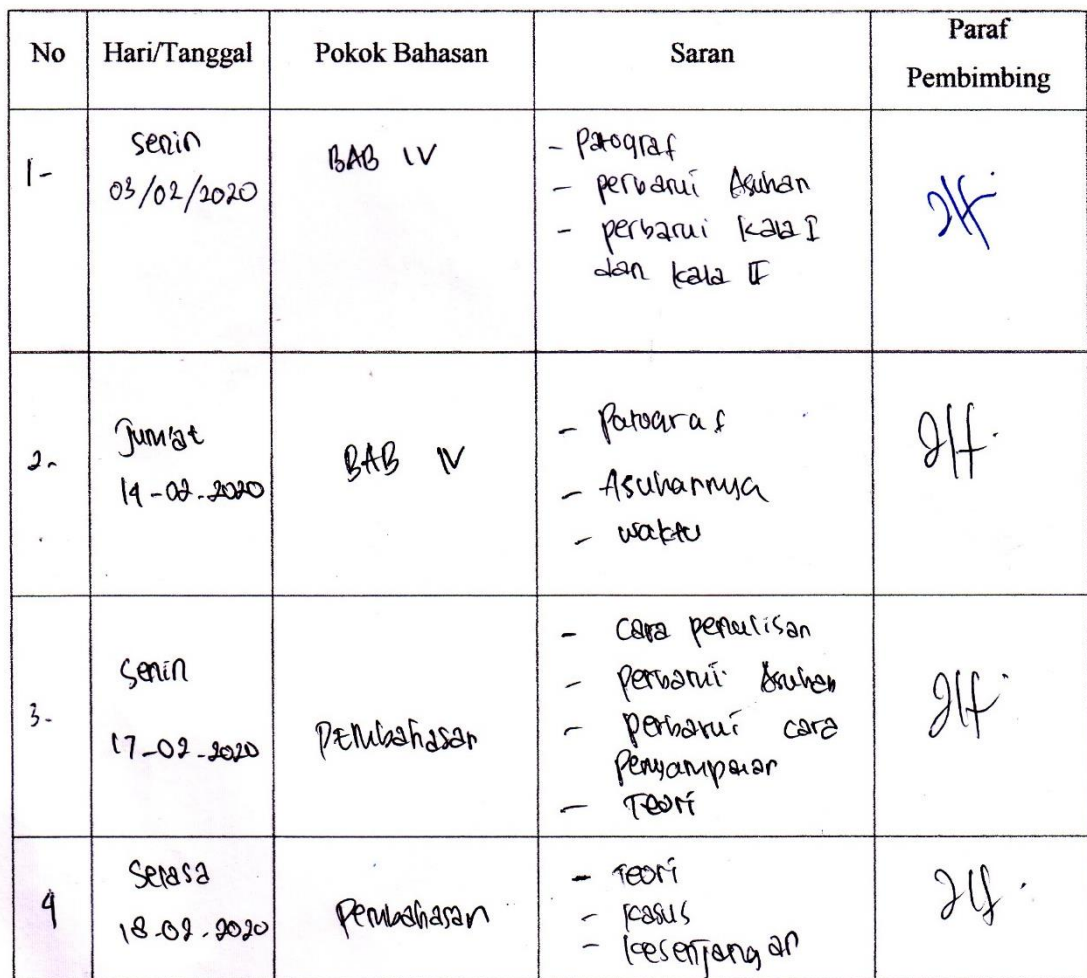 No Hari/Tanggal Pokok Bahasan Saran Paraf Pembimbing
1- Senin 03/02/2020 BAB IV
- Patograf
- perbarui Asuhan
- perbarui kala I
dan kala II
2- Jum'at 14-02-2020 BAB IV
- Patograf
- Asuhannya
- waktu
3- Senin 17-02-2020 Pembahasan
- cara penulisan
- perbarui Asuhan
- perbarui cara
Penyampaian
- Teori
4 Selasa 18-02-2020 Pembahasan
- Teori
- kasus
- kesenjangan